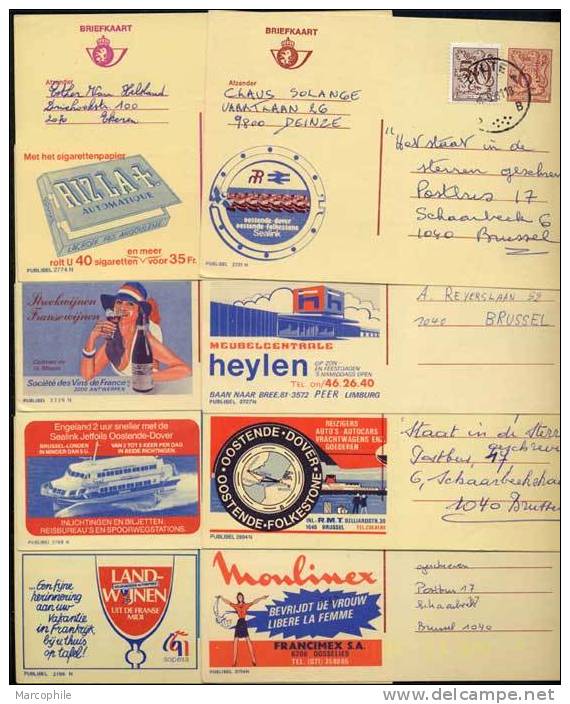 BRIEFKAART
Afzender
Esther Van
100
2070 Ekeren
Met het sigarettenpapier
RIZLA+
AUTOMATIQUE
LACROIX FILS ANGOULEME
en meer
rolt U 40 sigaretten voor 35 Fr.
PUBLIBEL 2774 N
BRIEFKAART
Afzender
CLAUS SOLANGE
VAARTLAAN 26
9800 DEINZE
oostende-dover
oostende-folkestone
Sealink
B
"Het staat in de
sterren geschreven
Postbus 17
Schaarbeek 6
1040 Brussel
Streekwijnen
Fransewijnen
Société des Vins de France
2000 ANTWERPEN
MEUBELCENTRALE
heylen
OP ZON-
EN FEESTDAGEN
'S NAMIDDAGS OPEN
TEL. 011/46.26.40
BAAN NAAR BREE, 81-3572 PEER LIMBURG
PUBLIBEL 2727N
A. REYERSLAAN 52
1040 BRUSSEL
Engeland 2 uur sneller met de
Sealink Jetfoils Oostende-Dover
BRUSSEL-LONDEN
IN MINDER DAN 5 U.
VAN 2 TOT 5 KEER PER DAG
IN BEIDE RICHTINGEN.
INLICHTINGEN EN BILJETTEN:
REISBUREAU'S EN SPOORWEGSTATIONS.
OOSTENDE-DOVER
OOSTENDE-FOLKESTONE
REIZIGERS
AUTO'S-AUTOCARS
VRACHTWAGENS EN
GOEDEREN
INL. R.M.T. BELLIARDSTR. 30
1040 BRUSSEL
PUBLIBEL 2804N
Staat in de Sterren
geschreven
Postbus, 17
6, Schaarbeekstraat
1040 Brussel
...Een fijne
herinnering
aan uw
vakantie
in Frankrijk
bij u thuis
op tafel!
LAND-
WIJNEN
UIT DE FRANSE
MIDI
sopexa
Moulinex
BEVRIJDT DE VROUW
LIBERE LA FEMME
FRANCIMEX S.A.
6200 GOSSELIES
geschreven
Postbus 17
Schaarbeek
Brussel 1040
Marcophile
delcampe.net